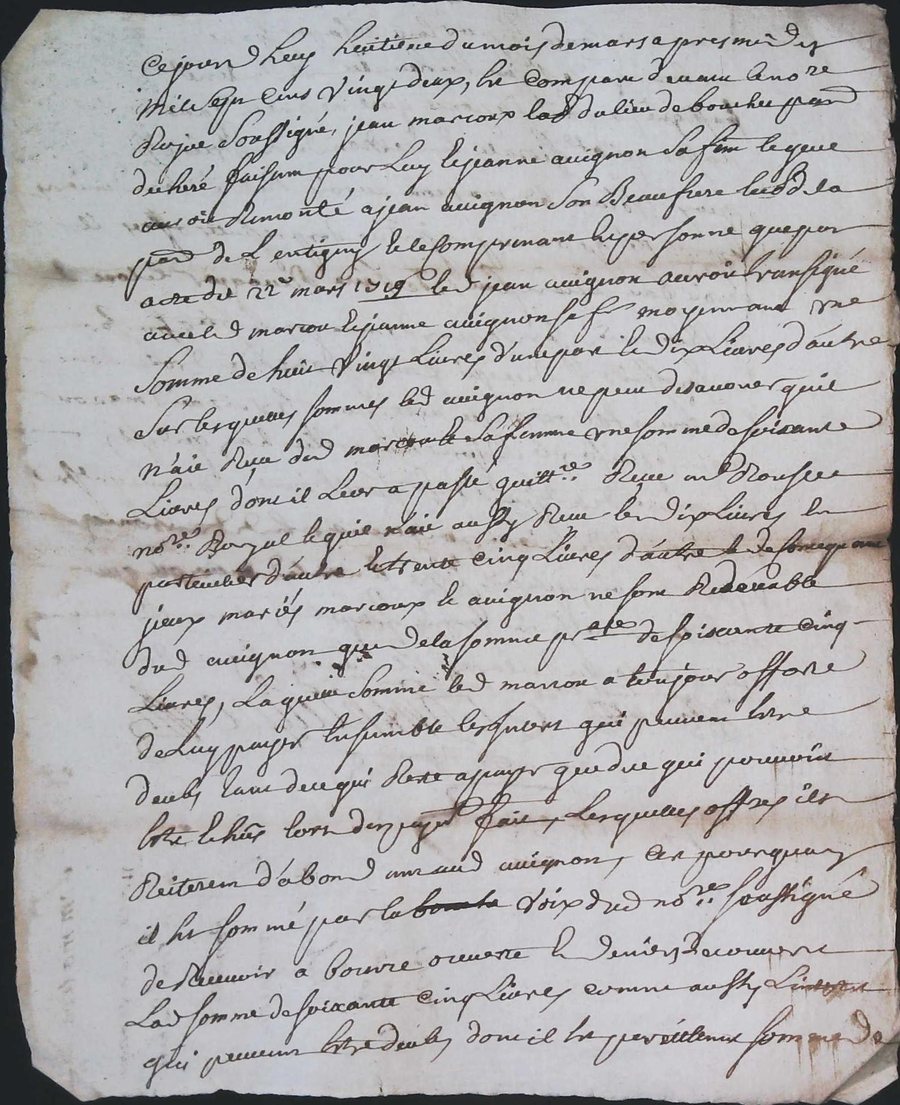 Ce jourd huy huitieme du mois de mars apres midy
mil sept cens vingt deux, est comparu devant le no.re
Royal Soussigné, jean marcoux lab.r du lieu de
faisant pour luy et jeanne avignon sa fem. lequel
auroit Remonté a jean avignon son Beaufrere lab.r de la
par.e de Lentigny et le comprenant en personne que par
acte du 22e mars 1719 led jean avignon auroit transigué
avec led marcou et jeanne avignon sa f.e moyennant une
Somme de huit vingt Livres d'une part et dix Livres d'autre
Sur lesquelles sommes led avignon ne peut desavouer qu'il
n'aie Receu dud marcou et sa femme une somme de soisante
Livres dont il leur a passé quitt.ce Receue
no.re Royal et qu'il n'aie aussy Receu les dix Livres en
particulier d'autre et trente cinq Livres d'autre
jceux mariés marcoux et avignon ne sont Redevable
dud avignon que de la somme p.nte de soissante cinq
Livres, Laquelle somme led marcou a toujour offerte
de Luy payer ensemble les jnterests qui peuvent estre
deubs tant de ce qui Reste a payer que de ce qui pouvoit
estre lors du fait, Lesquelles offres ils
Reiterent d'abond aud avignon, C'est pourquoy
il est sommé par la voix dud no.re soussigné
de Recevoir a bource ouverte et deniers decouvert
Lad somme de soixante cinq Livres comme aussy
qui peuvent estre deubs dont il est